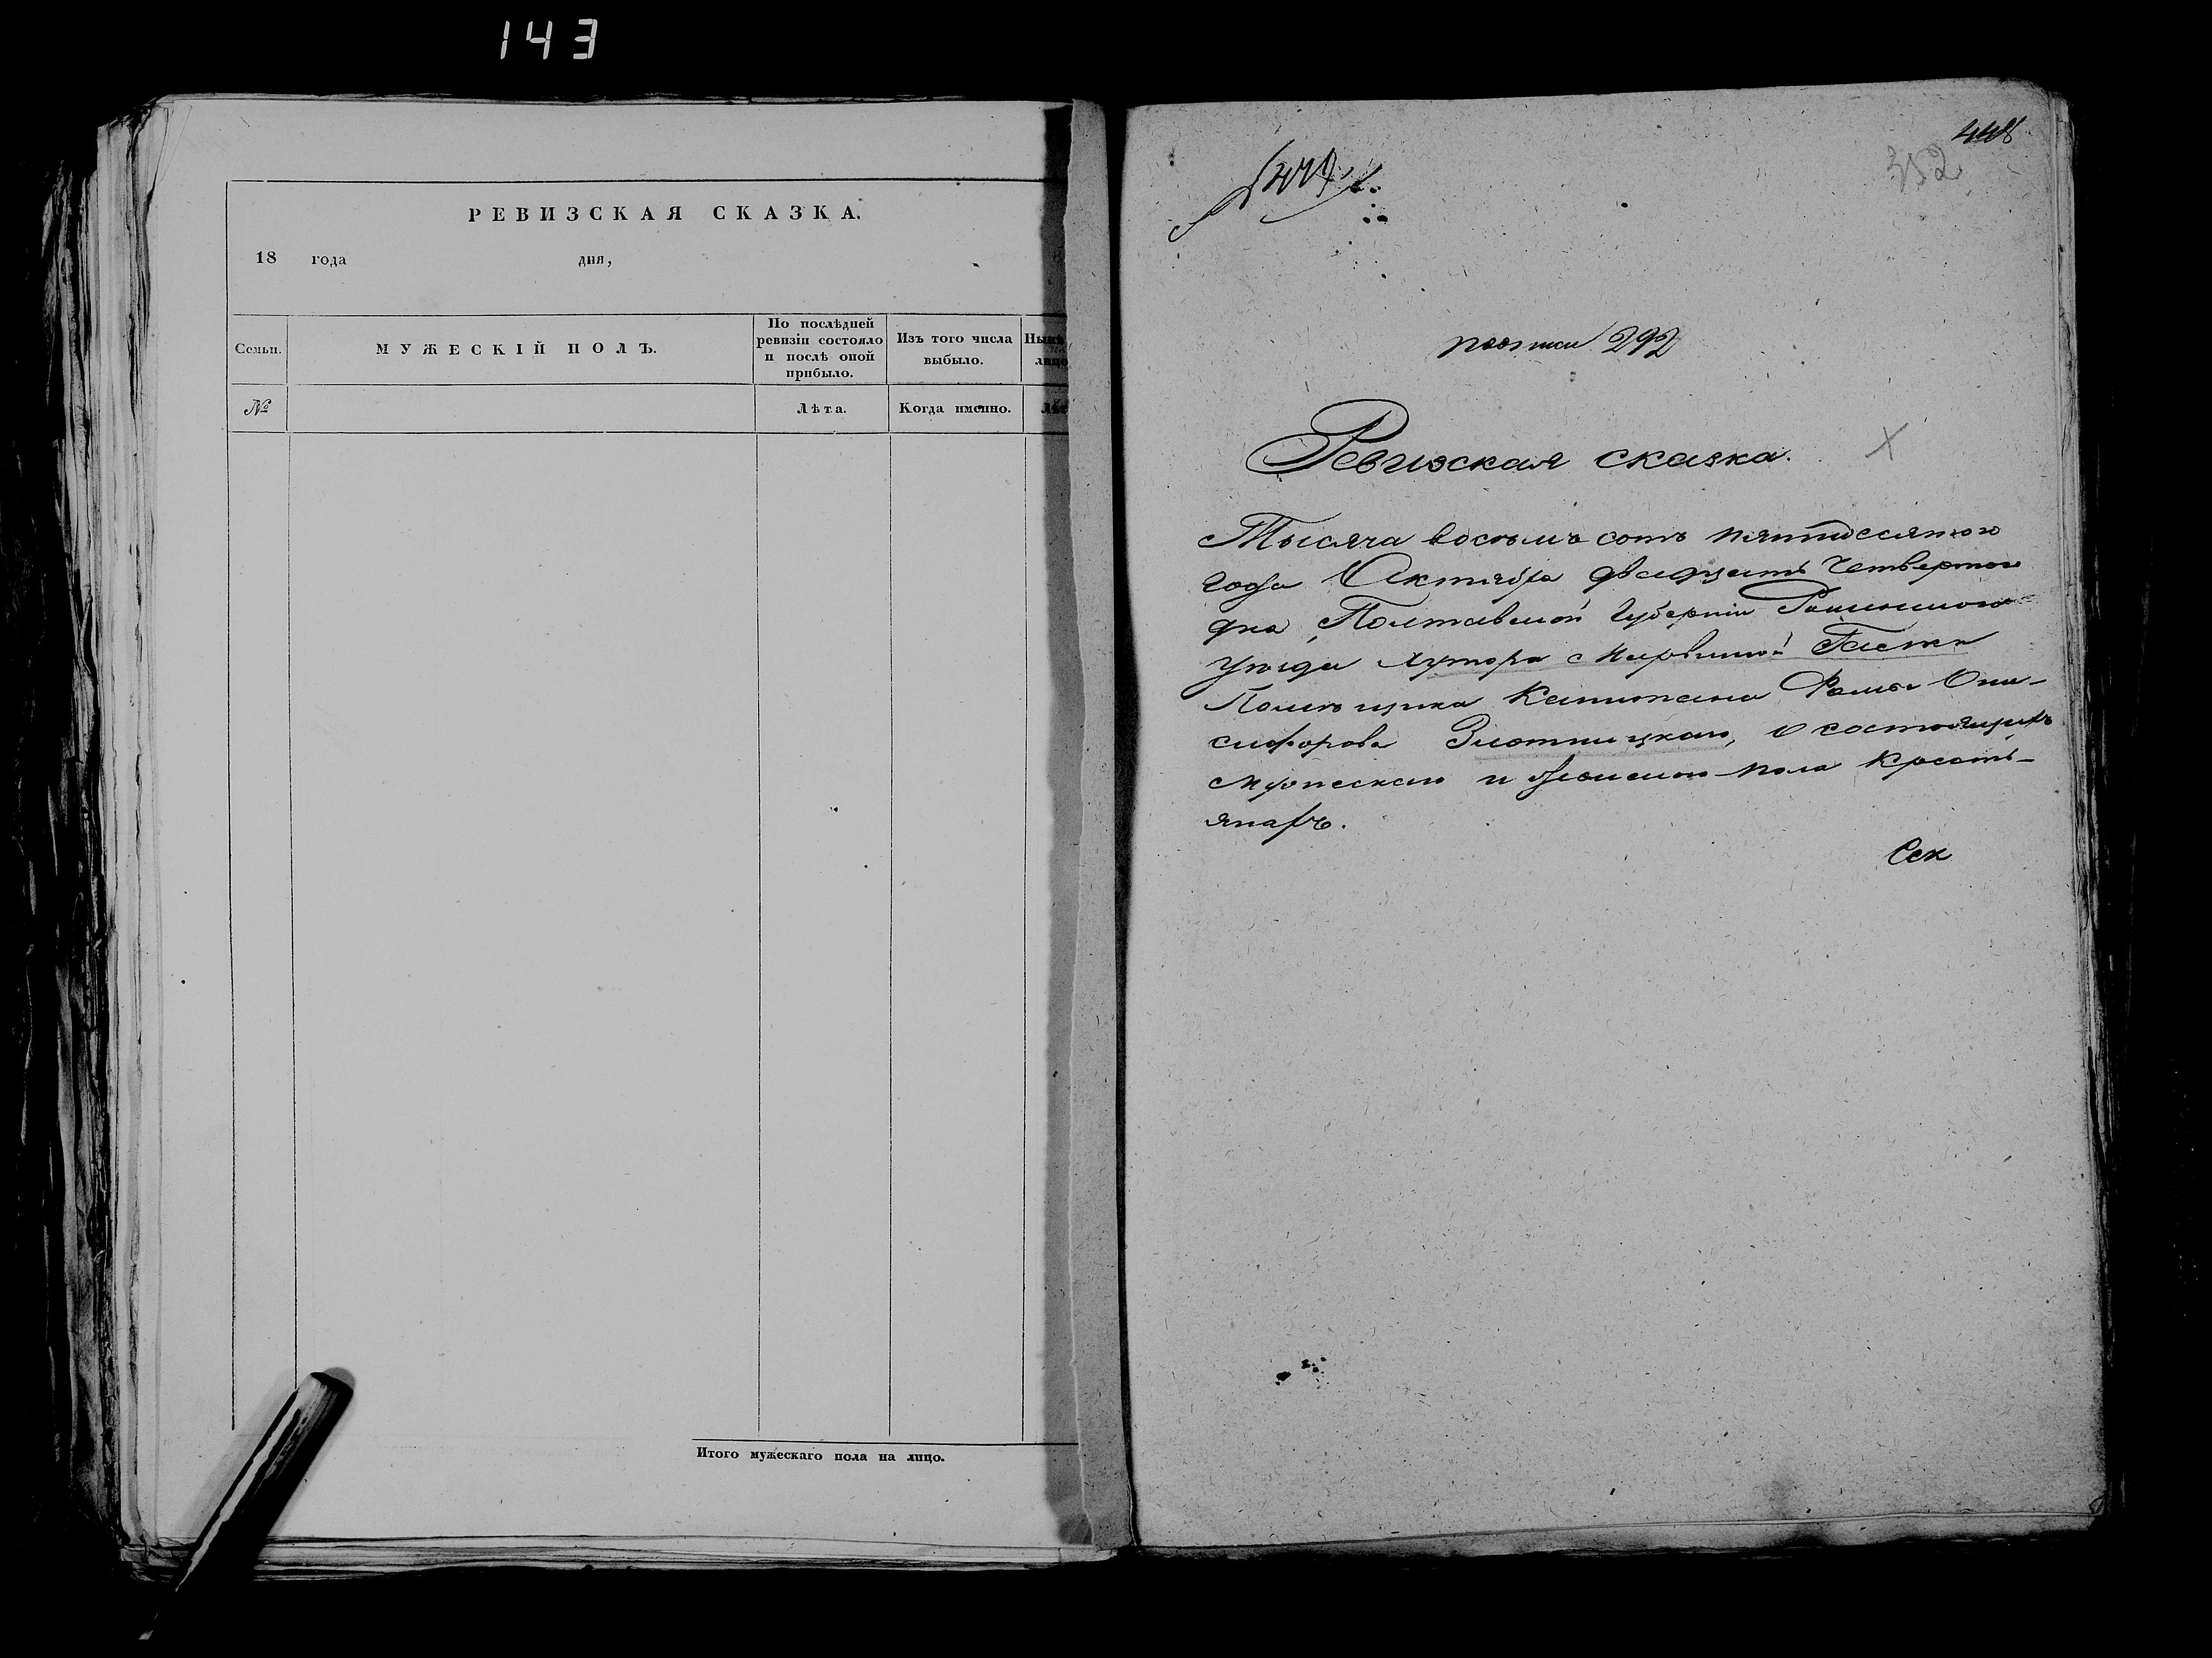 143
РЕВИЗСКАЯ СКАЗКА.
18 года дня,
Семьи.
МУЖЕСКІЙ ПОЛЪ.
По послѣдней ревизіи состояло и послѣ оной прибыло.
Изъ того числа выбыло.
№
Лѣта.
Когда именно.
Итого мужескаго пола на лицо.
448
352
292
Ревизская сказка.
Тысяча восемь сотъ пятидесятого
года Октября двадцать четвертого
дня, Полтавской Губерніи
уезда хутора
Помѣщика Капитана Фомы Они-
сифорова Злотницкаго, о состоящихъ
мужескаго и женского пола кресть-
янахъ.